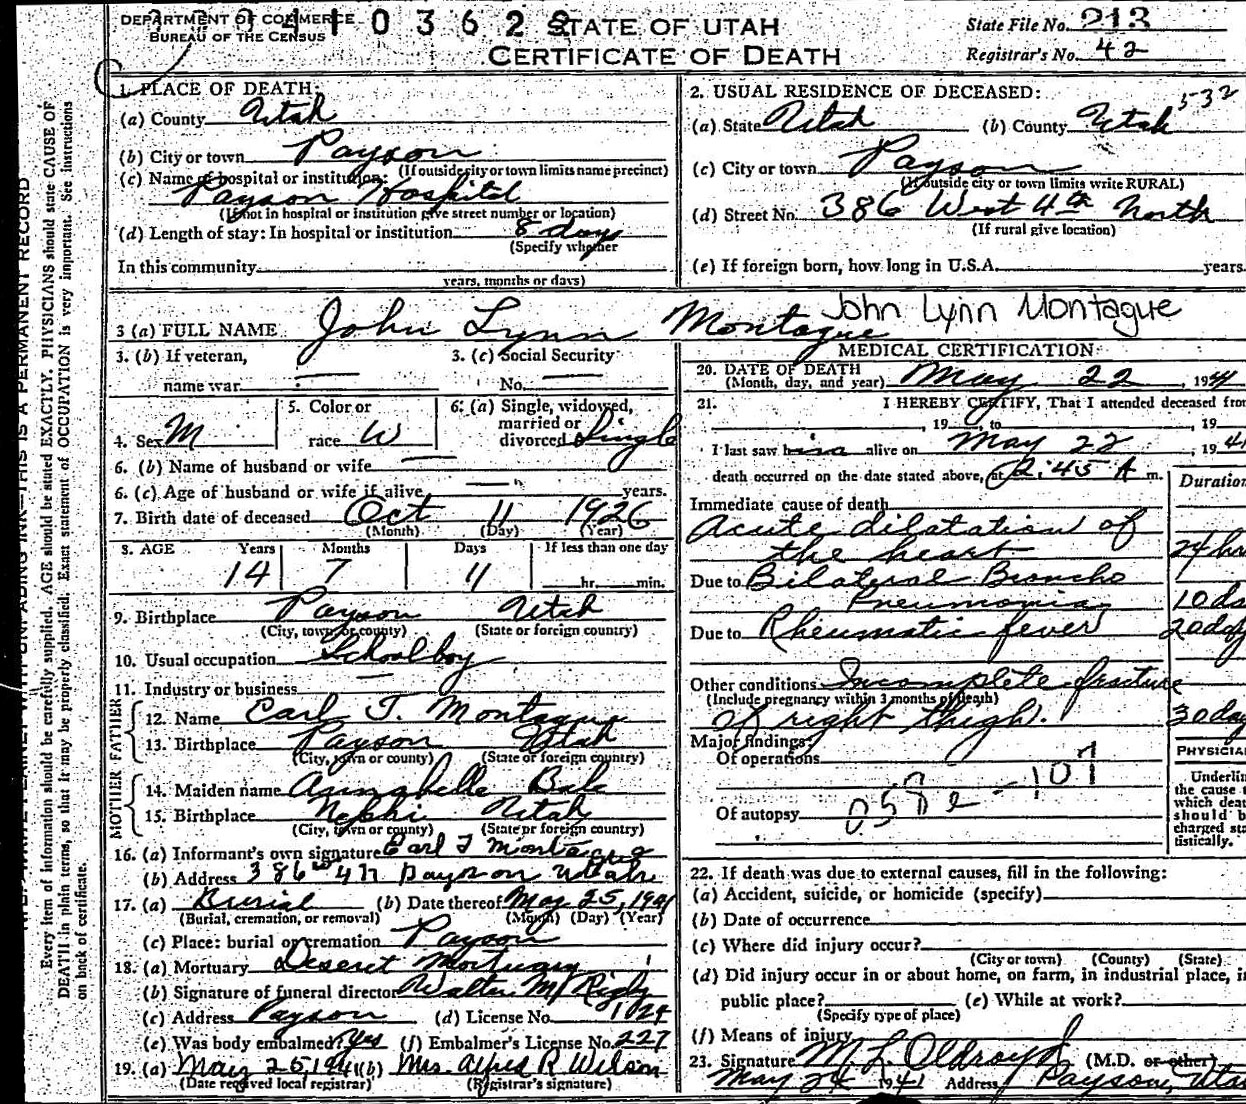 DEPARTMENT OF COMMERCE
BUREAU OF THE CENSUS
10362
STATE OF UTAH
CERTIFICATE OF DEATH
State File No. 213
Registrar's No. 42
1. PLACE OF DEATH:
(a) County Utah
(b) City or town Payson
(If outside city or town limits name precinct)
(c) Name of hospital or institution:
Payson Hospital
(If not in hospital or institution give street number or location)
(d) Length of stay: In hospital or institution 8 days
(Specify whether
In this community
years, months or days)
2. USUAL RESIDENCE OF DECEASED:
532
(a) State Utah (b) County Utah
(c) City or town Payson
(If outside city or town limits write RURAL)
(d) Street No. 386 West 4th North
(If rural give location)
(e) If foreign born, how long in U.S.A. years.
3 (a) FULL NAME John Lynn Montague
John Lynn Montague
3. (b) If veteran,
name war
3. (c) Social Security
No.
4. Sex M
5. Color or
race W
6. (a) Single, widowed,
married or
divorced Single
6. (b) Name of husband or wife
6. (c) Age of husband or wife if alive years.
7. Birth date of deceased Oct 11 1926
(Month) (Day) (Year)
8. AGE Years Months Days If less than one day
14 7 11 hr. min.
9. Birthplace Payson Utah
(City, town or county) (State or foreign country)
10. Usual occupation Schoolboy
11. Industry or business
FATHER
12. Name Earl T. Montague
13. Birthplace Payson Utah
(City, town or county) (State or foreign country)
MOTHER
14. Maiden name Annabelle Bale
15. Birthplace Nephi Utah
(City, town or county) (State or foreign country)
16. (a) Informant's own signature Earl T Montague
(b) Address 386 W 4 N Payson Utah
17. (a) Burial (b) Date thereof May 25, 1941
(Burial, cremation, or removal) (Month) (Day) (Year)
(c) Place: burial or cremation Payson
18. (a) Mortuary Deseret Mortuary
(b) Signature of funeral director Walter M Rigby
(c) Address Payson (d) License No. 1024
(e) Was body embalmed? Yes (f) Embalmer's License No. 227
19. (a) May 25, 1941 (b) Mrs. Alfred R Wilson
(Date received local registrar) (Registrar's signature)
MEDICAL CERTIFICATION
20. DATE OF DEATH
(Month, day, and year) May 22, 1941
21. I HEREBY CERTIFY, That I attended deceased from
, 19 , to , 19
I last saw him alive on May 22, 1941
death occurred on the date stated above, at 2:45 A m.
Duration
Immediate cause of death
Acute dilatation of
the heart 24 hr
Due to Bilateral Broncho
Pneumonia 10 da
Due to Rheumatic fever 20 day
Other conditions Incomplete fracture
(Include pregnancy within 3 months of death)
of right thigh. 30 day
Major findings:
Of operations
Of autopsy
107
PHYSICIAN
Underline
the cause to
which death
should be
charged sta-
tistically.
22. If death was due to external causes, fill in the following:
(a) Accident, suicide, or homicide (specify)
(b) Date of occurrence
(c) Where did injury occur?
(City or town) (County) (State)
(d) Did injury occur in or about home, on farm, in industrial place, in
public place? (e) While at work?
(Specify type of place)
(f) Means of injury
23. Signature M L Oldroyd (M.D. or other)
May 24 1941 Address Payson, Utah
Every item of information should be carefully supplied. AGE should be stated EXACTLY. PHYSICIANS should state CAUSE OF
DEATH in plain terms, so that it may be properly classified. Exact statement of OCCUPATION is very important. See instructions
on back of certificate.